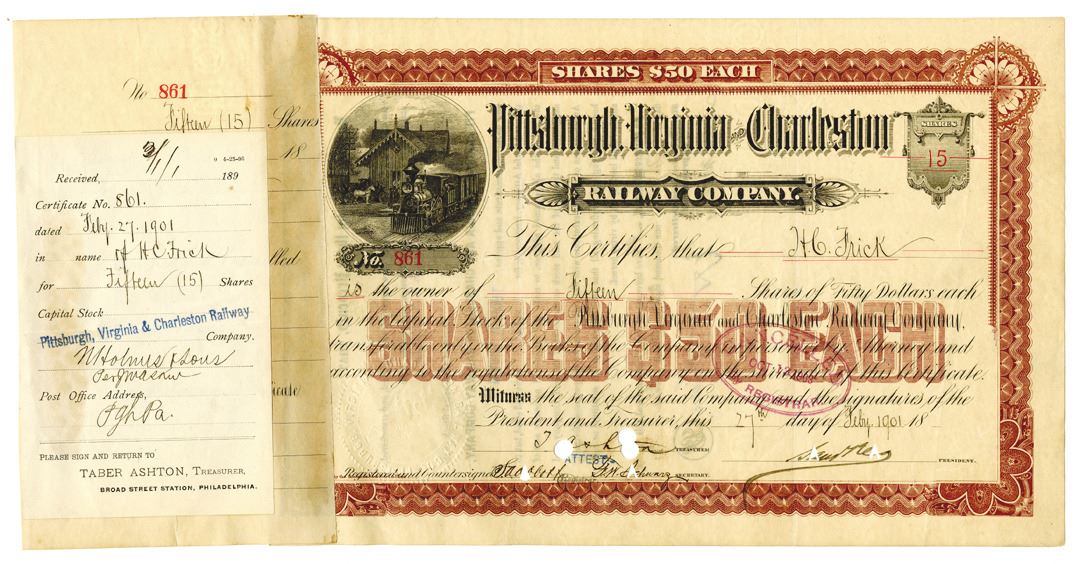 No 861
Fifteen (15) Shares
18
2/1/1 189
6-25-96
Received,
Certificate No. 861.
dated Feby. 27. 1901
in name of H C Frick
for Fifteen (15) Shares
Capital Stock
Pittsburgh, Virginia & Charleston Railway
Company.
N Holmes & Sons
Post Office Address,
Pgh Pa.
PLEASE SIGN AND RETURN TO
TABER ASHTON, TREASURER,
BROAD STREET STATION, PHILADELPHIA.
SHARES $50 EACH
Pittsburgh, Virginia AND Charleston
RAILWAY COMPANY.
SHARES
15
No. 861
This Certifies, that H C. Frick
is the owner of Fifteen Shares of Fifty Dollars each
in the Capital Stock of the Pittsburgh Virginia and Charleston Railway Company,
transferable only on the Books of the Company in person or by Attorney and
according to the regulations of the Company on the surrender of this Certificate.
SHARES $50 EACH
Witness the seal of the said Company and the signatures of the
President and Treasurer, this 27th day of Feby. 1901 18
T Ashton TREASURER
PRESIDENT.
ATTEST
Registered and Countersigned
SECRETARY.
REGISTRAR